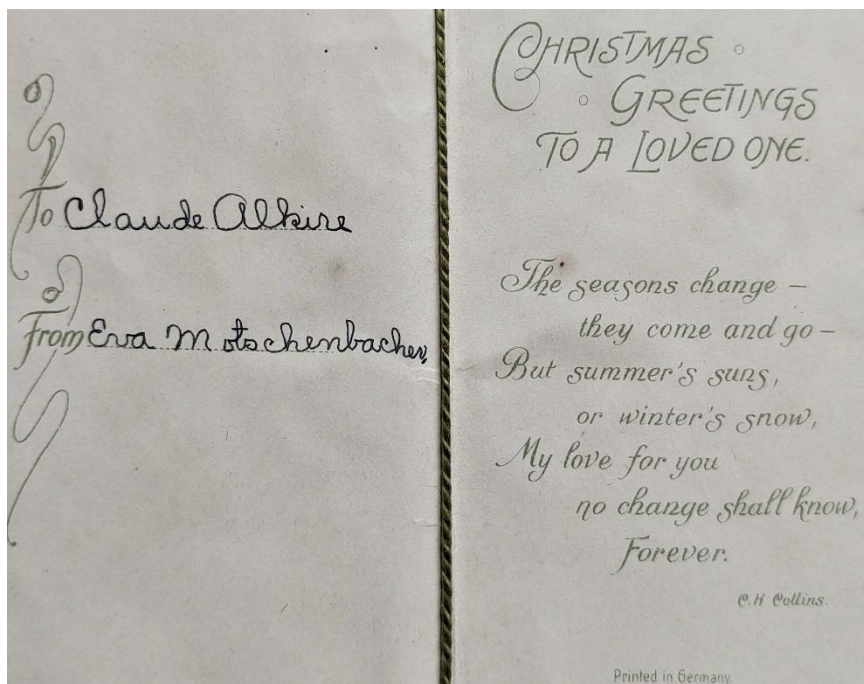 To Claude Alkire
From Eva Motschenbacher,
CHRISTMAS
GREETINGS
TO A LOVED ONE.
The seasons change –
they come and go –
But summer's suns,
or winter's snow,
My love for you
no change shall know,
Forever.
C.H Collins.
Printed in Germany.